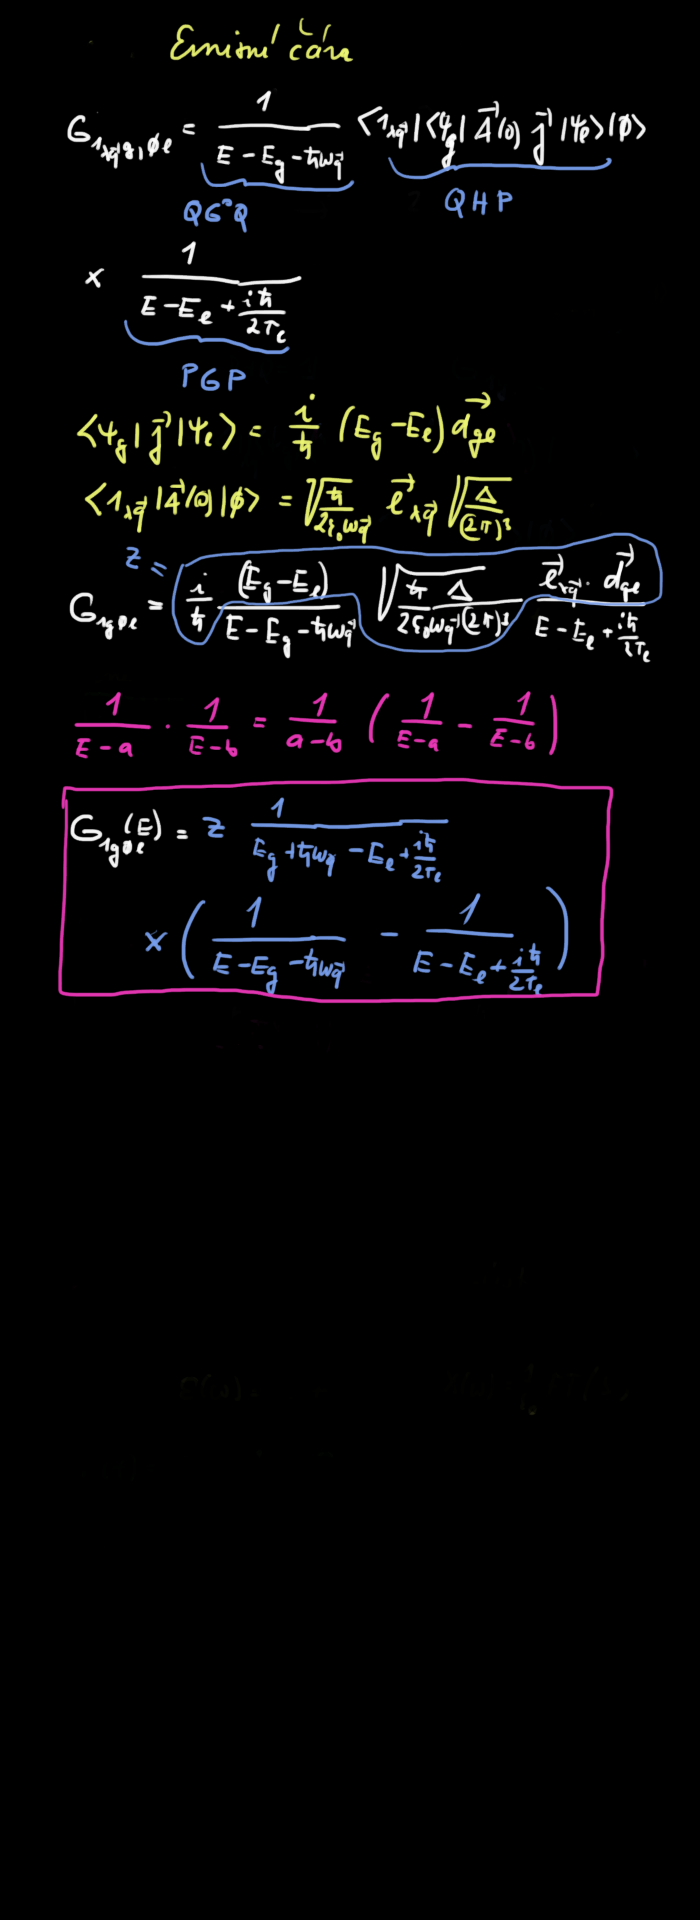 Emisní čára
G_{1λq⃗g,∅e} = \frac{1}{E - E_g - ℏω_{q⃗}} ⟨1_{λq⃗}|⟨ψ_g| A⃗(0) j⃗ |ψ_e⟩|∅⟩
QG°Q QHP
× \frac{1}{E - E_e + \frac{iℏ}{2τ_e}}
PGP
⟨ψ_g| j⃗ |ψ_e⟩ = \frac{i}{ℏ} (E_g - E_e) d⃗_{ge}
⟨1_{λq⃗}|A⃗(0)|∅⟩ = \sqrt{\frac{ℏ}{2ε_0 ω_{q⃗}}} e⃗_{λq⃗} \sqrt{\frac{Δ}{(2π)^3}}
z =
G_{1g∅e} = \frac{i}{ℏ} \frac{(E_g - E_e)}{E - E_g - ℏω_{q⃗}} \sqrt{\frac{ℏ Δ}{2ε_0 ω_{q⃗} (2π)^3}} \frac{e⃗_{λq⃗} · d⃗_{ge}}{E - E_e + \frac{iℏ}{2τ_e}}
\frac{1}{E - a} · \frac{1}{E - b} = \frac{1}{a - b} ( \frac{1}{E - a} - \frac{1}{E - b} )
G_{1g∅e}(E) = z \frac{1}{E_g + ℏω_{q} - E_e + \frac{iℏ}{2τ_e}}
× ( \frac{1}{E - E_g - ℏω_{q⃗}} - \frac{1}{E - E_e + \frac{iℏ}{2τ_e}} )